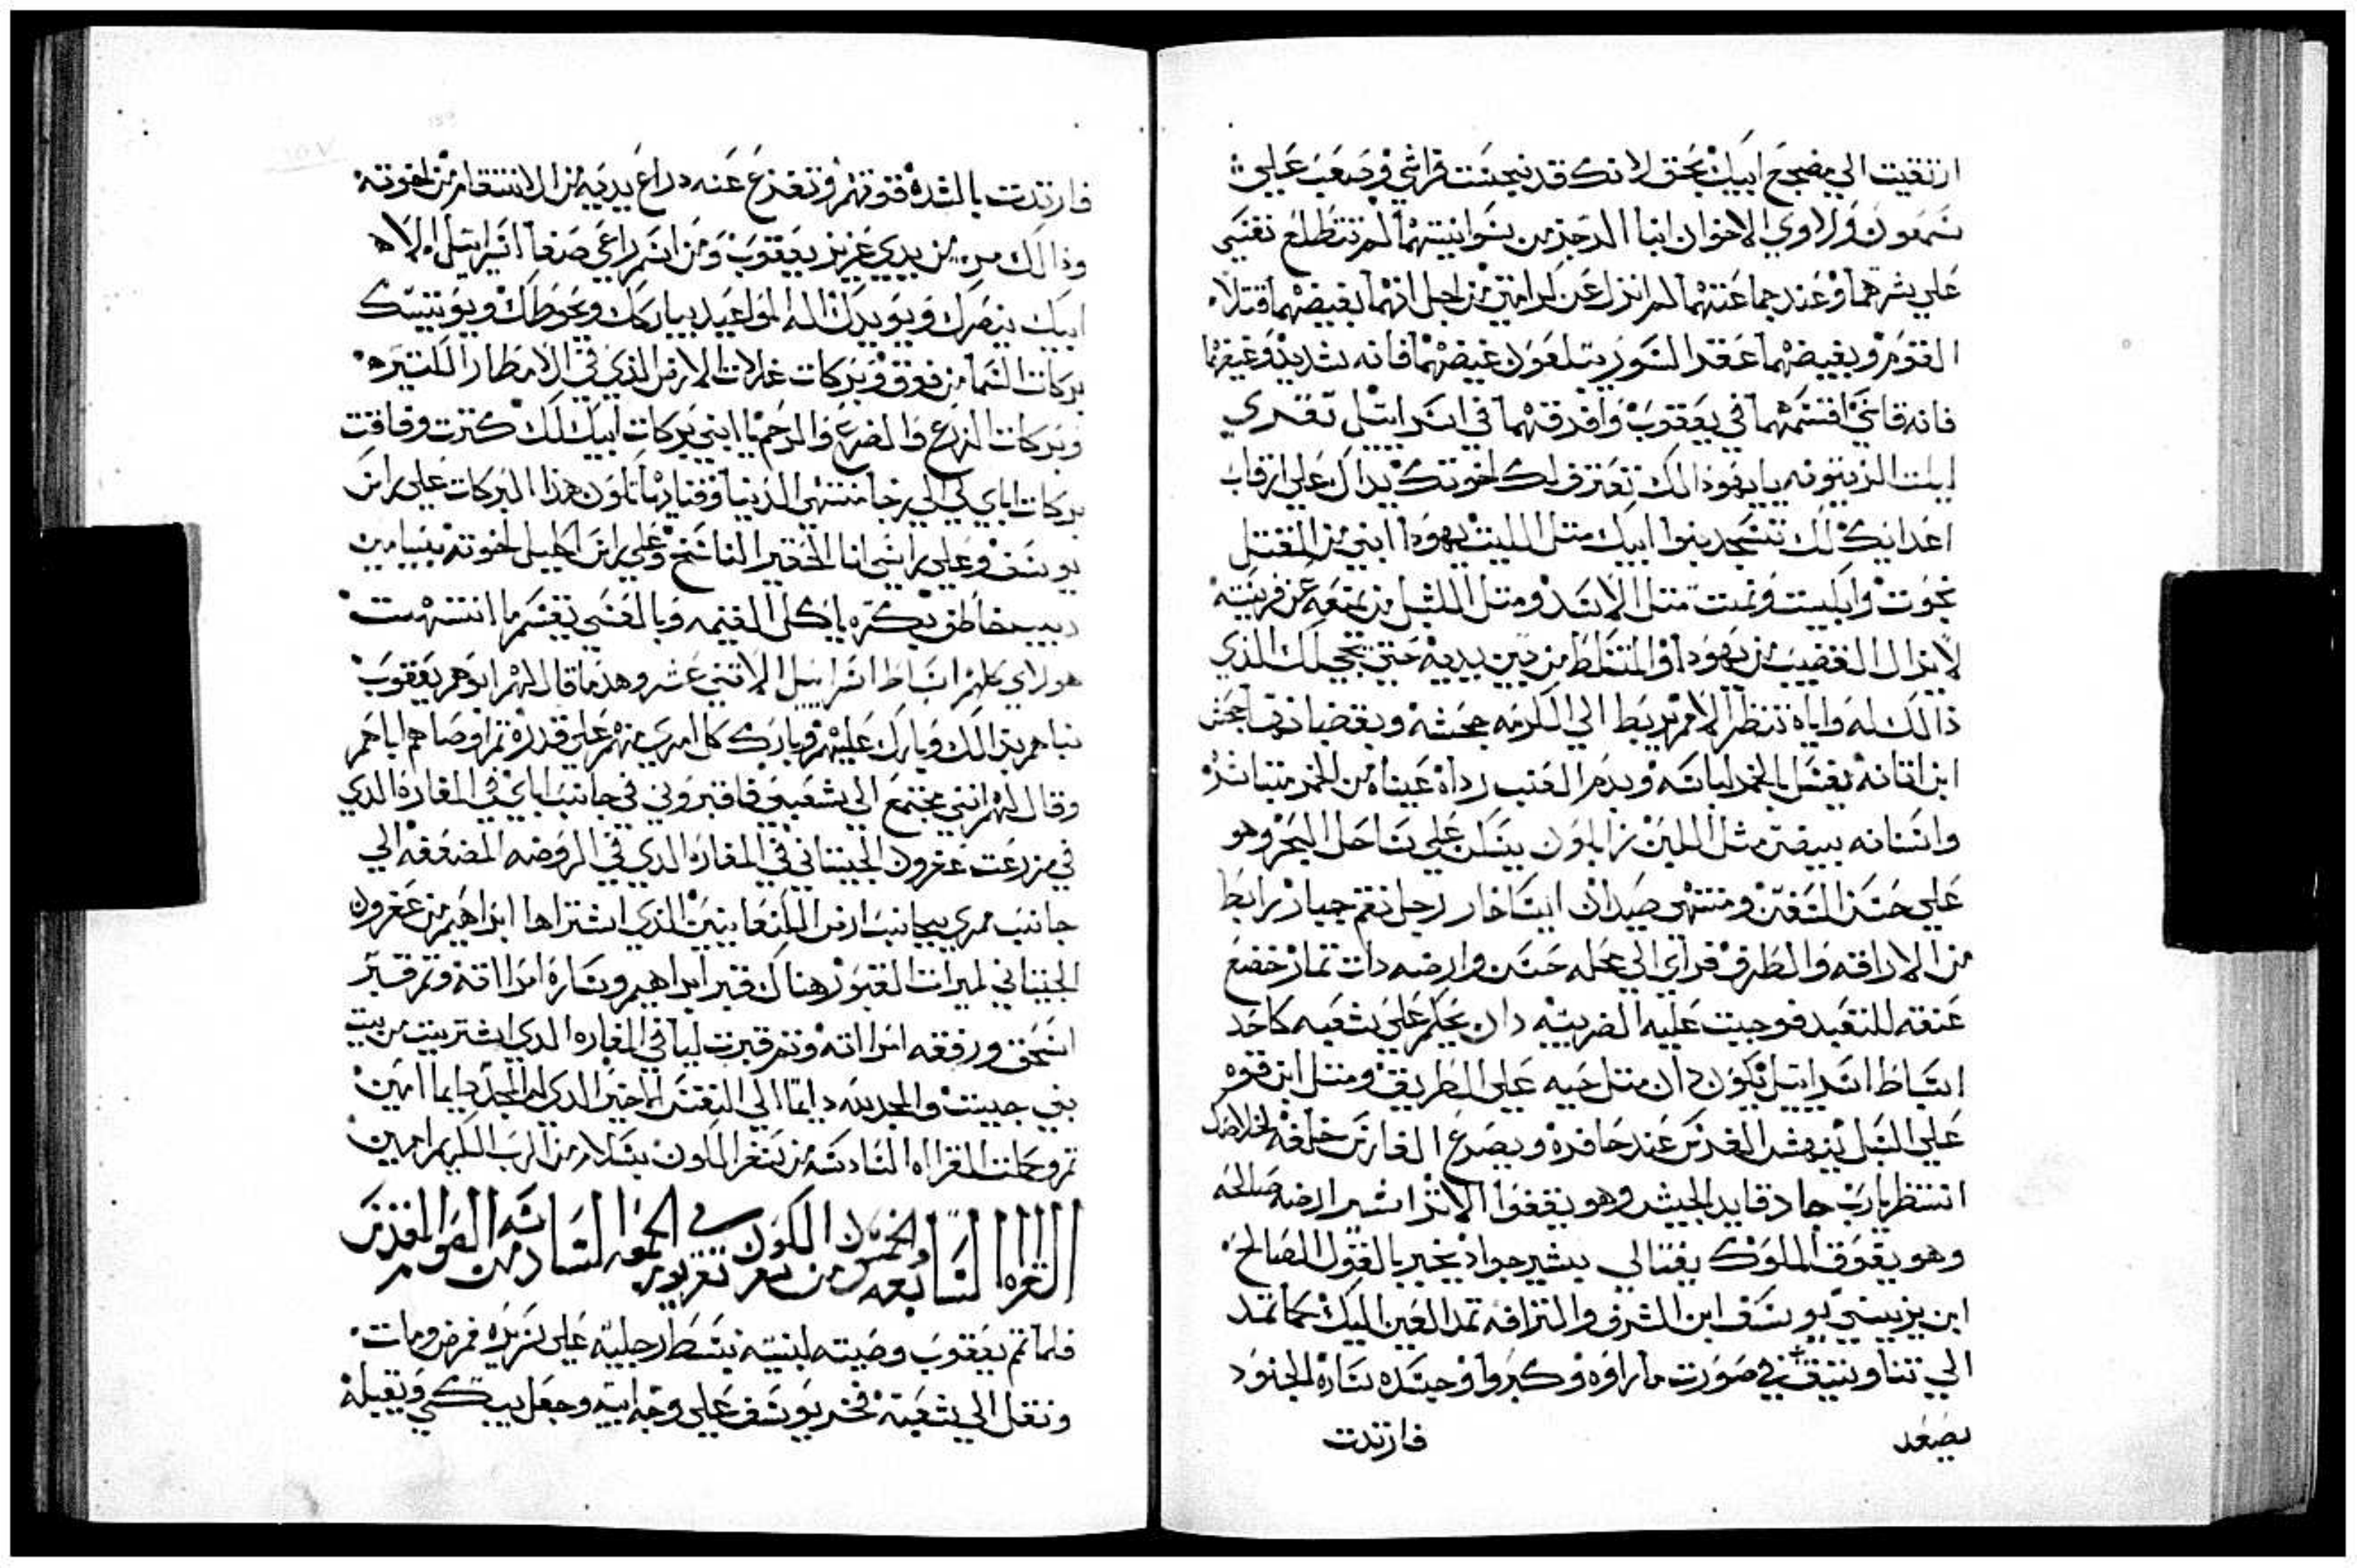 ارتقيت الي مضجع ابيك بحق لانك قد نجست فراشي وصعب علي
شمعون ولاوي الاخوان ابنا الدجز من سوانيتهما لم تتطلع نفسي
علي شرهما وعند جماعتهما لم انزل عن كرامتي من اجل انهما بغيضهما قتلا
القوم وبغيضهما عقدا السور يتلعون غيضهما فانه شديد وغيضهما
فانه قاسي اقسمهما في يعقوب وافرقهما في اسراييل تقدي
ايلت الزيتونه يا يهوذا لك تعترف لك اخوتك يداك علي ارقاب
اعدايك لك تسجد بنوا ابيك متل الليت يهودا ابني من المقتل
نجوت واتكيت ونمت متل الاسد ومتل الشبل من يمنعه عن فريسته
لا يزال القضيب من يهودا والمتسلط من بين يديه حتي يجي لك الذي
ذالك له واياه تنتظر الامم يربط الي الكرمه جحشه وبقضبانها جحش
ابن اتانه يغسل بالخمر لباسه وبدم العنب رداه عيناه من الخمر متباشره
واسنانه بيضن مثل اللبن زابلون يسكن علي ساحل البحر وهو
علي حسن السفن ومنتهي صيدان ايساخار رجل نعم جبار رابط
من الاراقه والطرف فراي الي محله حسن وارضه دات تمار خضع
عنقه للتعبد فوجبت عليه الضريبه دان يحكم علي شعبه كاحد
اسباط اسراييل يكون دان متل حيه علي الطريق ومتل ابن قوه
علي السبل ينهش الفرس عند حافره ويصرع الفارس خلفه لخلاصك
انتظر يارب جاد قايد الجيش وهو يقفوا الاثر اشير ارضه صالحه
وهو يقوق الملوك يفتالي بيشير جواد يخبر بالقول الصالح
ابن يزيبني يوسف ابن الشرف والترافه تمد العين اليك كما تمد
الي تناويتيف في صورت ما راوه وكبروا وحسده ساره الجنود
بصعد فارتدت
فارتدت بالشده قوتهم وتفزع عنه دراع يديه من الانتقام من اخوته
وذالك من بين يدي عزيز يعقوب ومن اسم راعي صفا اسراييل اله
ابيك ينصرك ويويدك اله المواعيد يباركك ويحوطك ويونسك
بركات السما من فوق وبركات غلات الارض الذي في الامطار الكتيره
وبركات الزرع والضرع والرحم يا ابني بركات ابيك لك كترت وفاقت
بركات اباي لي الي رجا منتهي الدنيا وقنارها تكون هذا البركات علي راس
يوسف وعلي راسي انا الحقير الناسخ وعلي راس اكليل اخوته بنيامين
ديب خاطف بكره ياكل الغنيمه وبالعشي تقسم ما انتهت
هولاي كلهم اسباط اسراييل الاتني عشر وهدا ما قال لهم ابوهم يعقوب
نباهم بذالك وبارك عليهم وبارك كل امري منهم علي قدره تم اوصاهم اباهم
وقال لهم انني مجتمع الي شعبي فاقبروني في جانب اباي في المغاره الدي
في مزرعت عفرون الحيتاني في المغاره الدي في الروضه المضعفه الي
جانب ممري بجانب ارض الكنعانيين الذي اشتراها ابراهيم من عفرون
الحيتاني لميرات القبور هناك قبر ابراهيم وساره امراته وتم قبر
اسحق ورفقه امراته وتم قبرت ليا في المغاره الدي اشتريت من بيت
بني حيت والمجد لله دايما الي النفس الاخير الدي له المجد دايما امين
تم وكملت القراه السادسه من سفر الكون بسلام من الرب الكريم امين
القراه السابعه والخمسون من سفر الكون تقري يوم في الجمعه السادسه من الصوم المقدس
فلما تم يعقوب وصيته لبنيه بسط رجليه علي سريره فمرض ومات
ونقل الي شعبه فخر يوسف علي وجه ابيه وجعل يبكي ويقبله